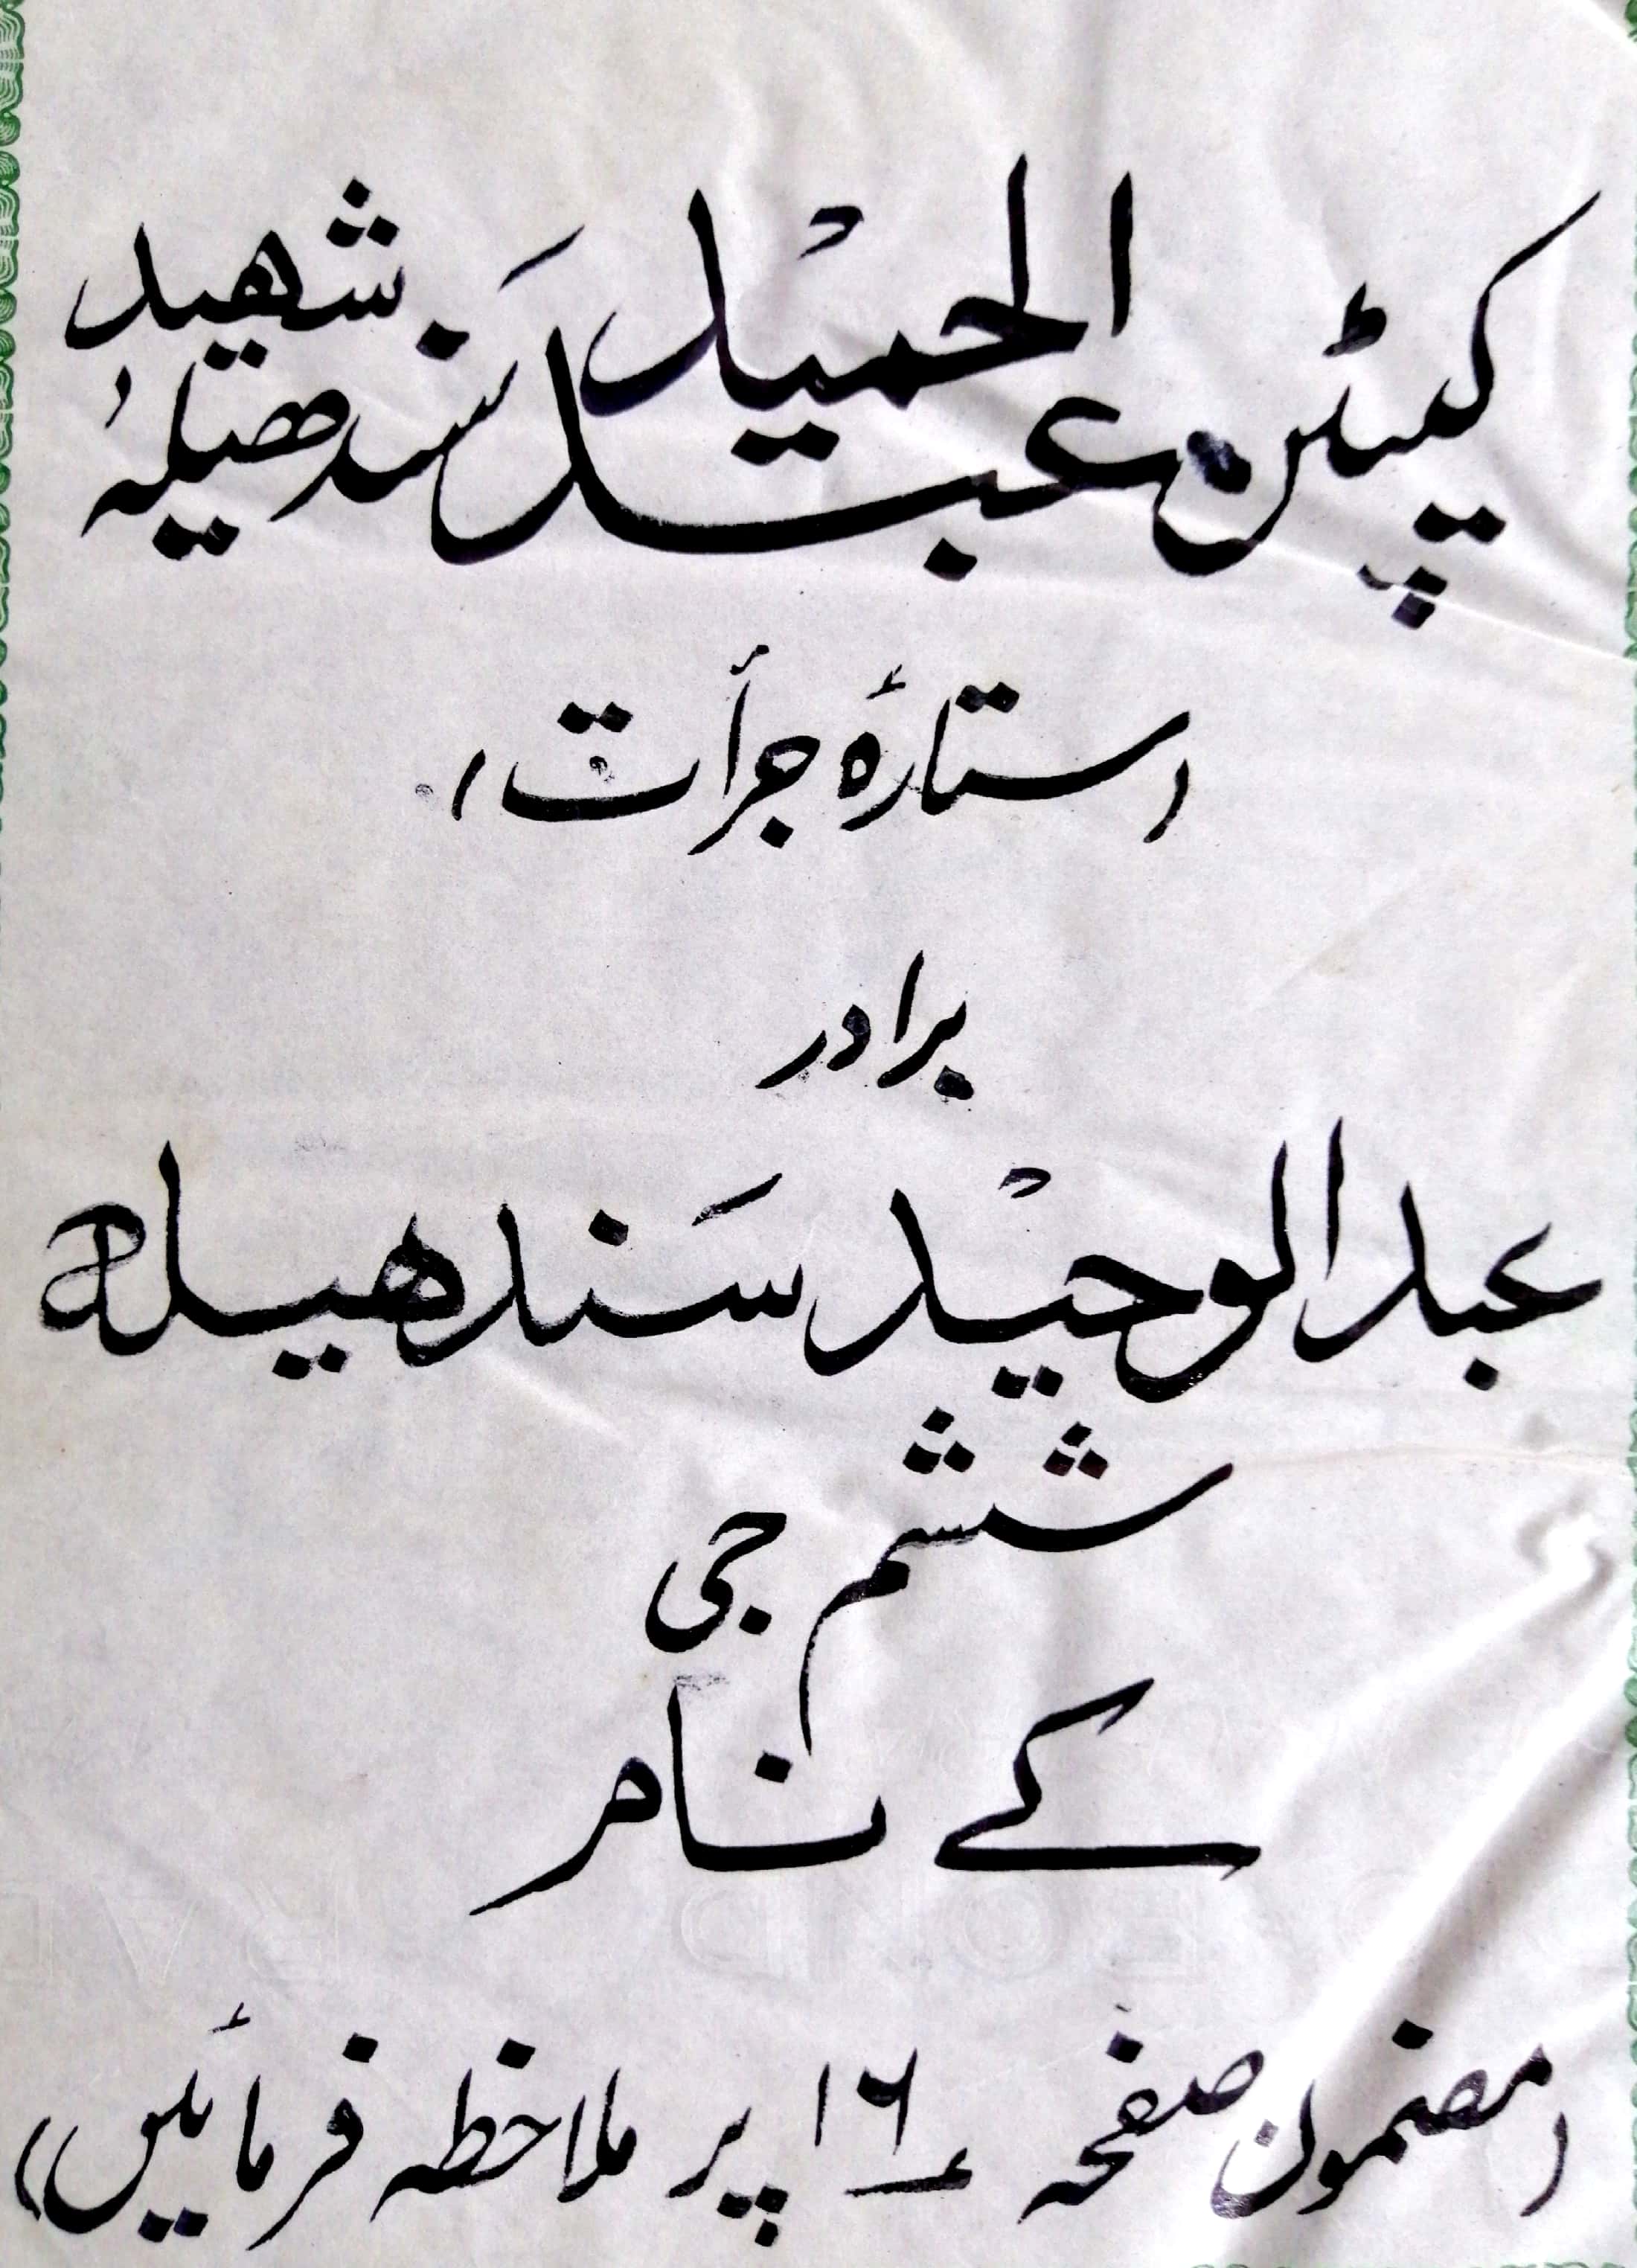 کیپٹن عبدالحمیْد سَندھیلہ شھید
(ستارۂ جرأت)
برادر
عبدالوحیْد سَندھیلہ
ششم جی
کے نام
(مضمون صفحہ ۱۶ پر ملاحظہ فرمائیں)